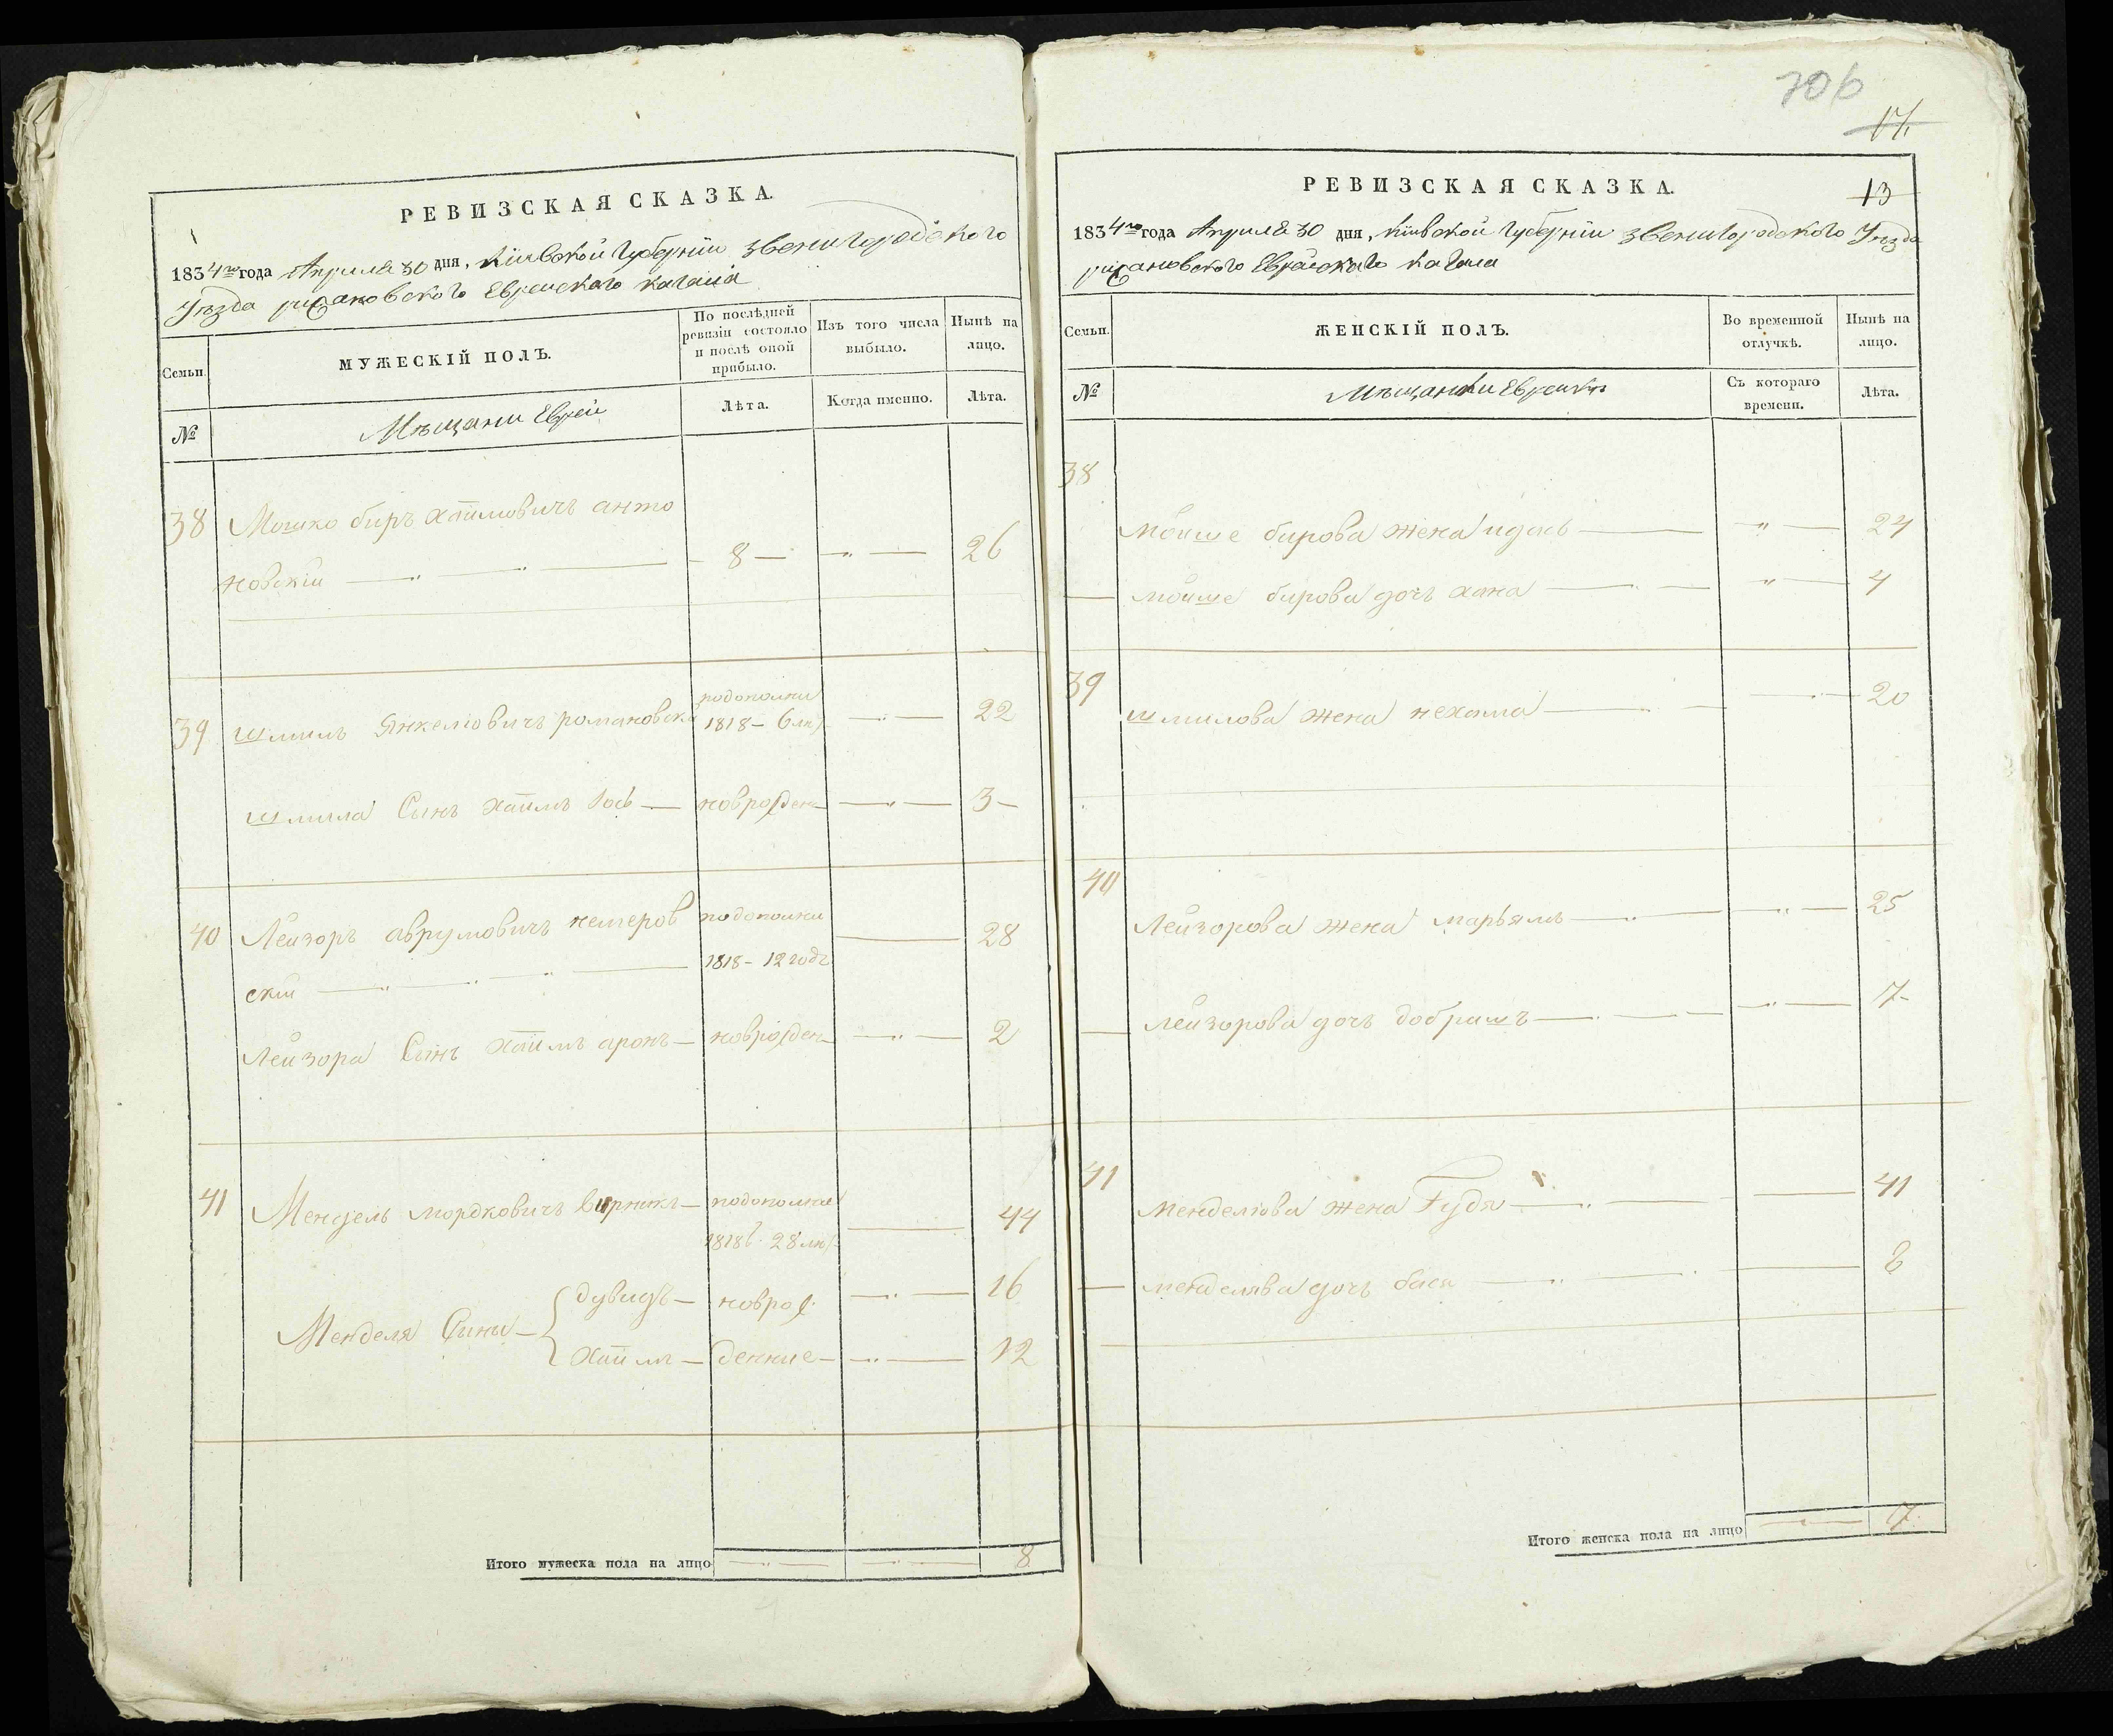 РЕВИЗСКАЯ СКАЗКА.
1834го года Апреля 30 дня, Кіивской Губерніи Звенигородского
Уезда рижановского Еврейского кагала
Семьи.
МУЖЕСКІЙ ПОЛЪ.
По послѣдней ревизіи состояло и послѣ оной прибыло.
Изъ того числа выбыло.
Нынѣ на лицо.
№
Мѣщани Евреи
Лѣта.
Когда именно.
Лѣта.
38 Мошко биръ хаимовичъ анто
новскій 8 26
подополни
39 шмиль Янкеліовичъ романовски 1818 – 6 лѣ 22
шмила Сынъ хаимъ Іось новрожден 3
40 Лейзоръ аврумовичъ немеров подополни 28
скій 1818 – 12 годъ
Лейзора Сынъ хаимъ аронъ новрожден 2
41 Мендель мордковичъ Вирникъ подополни 44
1818 28 лѣ
Менделя Сины дувидъ новрож 16
хаимъ денние 12
Итого мужеска пола на лицо 8
70б
17
13
РЕВИЗСКАЯ СКАЗКА.
1834го года Апреля 30 дня, Кіивской Губерніи Звенигородского Уезда
рижановского Еврейского кагала
Семьи.
ЖЕНСКІЙ ПОЛЪ.
Во временной отлучкѣ.
Нынѣ на лицо.
№
Мѣщанки Еврейки
Съ котораго времени.
Лѣта.
38
мойше бирова жена идась 24
мойше бирова дочъ хана 4
39
шмилова жена нехама 20
40
Лейзорова жена марьямъ 25
Лейзорова дочъ добришъ 7
41
менделіова жена Гудя 41
менделява дочъ бася 8
Итого женска пола на лицо 7